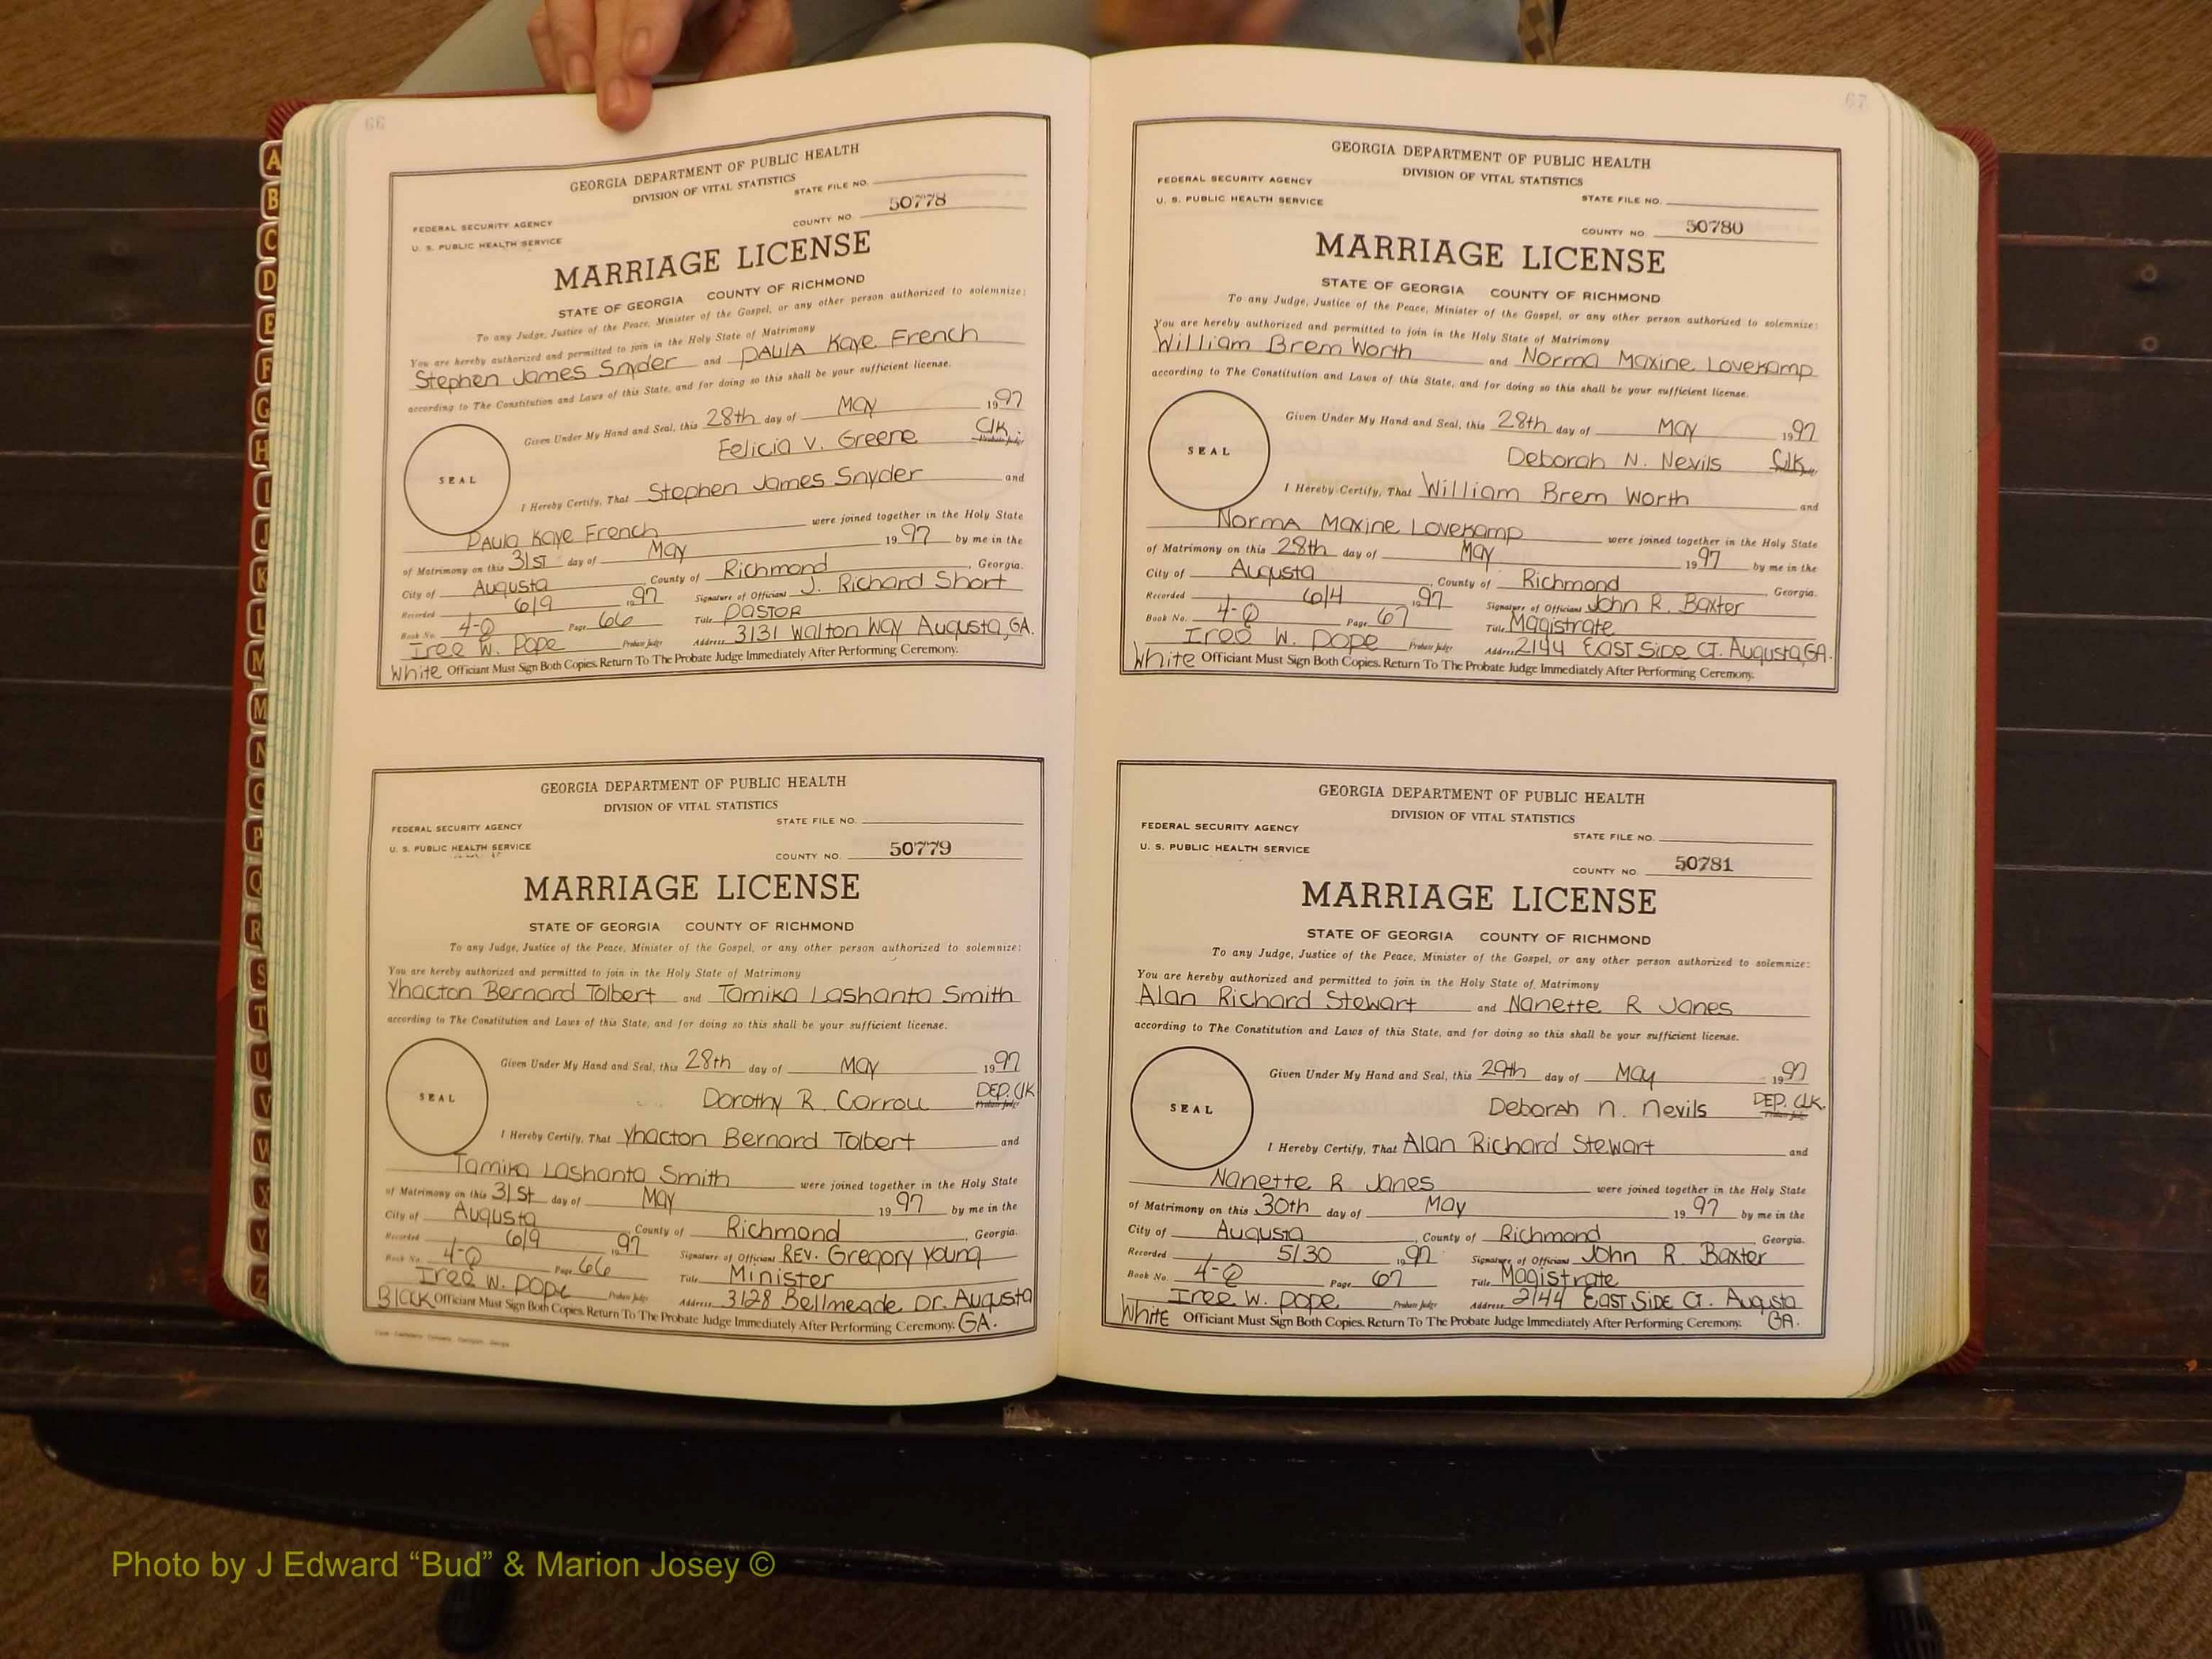 66
GEORGIA DEPARTMENT OF PUBLIC HEALTH
DIVISION OF VITAL STATISTICS
STATE FILE NO.
FEDERAL SECURITY AGENCY
U. S. PUBLIC HEALTH SERVICE
COUNTY NO. 50778
MARRIAGE LICENSE
STATE OF GEORGIA COUNTY OF RICHMOND
To any Judge, Justice of the Peace, Minister of the Gospel, or any other person authorized to solemnize:
You are hereby authorized and permitted to join in the Holy State of Matrimony
Stephen James Snyder and PAULA Kaye French
according to The Constitution and Laws of this State, and for doing so this shall be your sufficient license.
Given Under My Hand and Seal, this 28th day of May 1997
Felicia V. Greene Clk. Probate Judge
SEAL
I Hereby Certify, That Stephen James Snyder and
PAula Kaye French were joined together in the Holy State
of Matrimony on this 31st day of May 1997 by me in the
City of Augusta, County of Richmond, Georgia.
Recorded 6/9 1997 Signature of Officiant J. Richard Short
Book No. 4-Q Page 66 Title PASTOR
Iree W. Pope Probate Judge Address 3131 Walton Way Augusta, GA.
White Officiant Must Sign Both Copies. Return To The Probate Judge Immediately After Performing Ceremony.
GEORGIA DEPARTMENT OF PUBLIC HEALTH
DIVISION OF VITAL STATISTICS
STATE FILE NO.
FEDERAL SECURITY AGENCY
U. S. PUBLIC HEALTH SERVICE
COUNTY NO. 50779
MARRIAGE LICENSE
STATE OF GEORGIA COUNTY OF RICHMOND
To any Judge, Justice of the Peace, Minister of the Gospel, or any other person authorized to solemnize:
You are hereby authorized and permitted to join in the Holy State of Matrimony
Yhacton Bernard Tolbert and Tamika Lashanta Smith
according to The Constitution and Laws of this State, and for doing so this shall be your sufficient license.
Given Under My Hand and Seal, this 28th day of May 1997
Dorothy R. Carroll DEP. Clk Probate Judge
SEAL
I Hereby Certify, That Yhacton Bernard Tolbert and
Tamika Lashanta Smith were joined together in the Holy State
of Matrimony on this 31st day of May 1997 by me in the
City of Augusta, County of Richmond, Georgia.
Recorded 6/9 1997 Signature of Officiant REV. Gregory Young
Book No. 4-Q Page 66 Title Minister
Iree W. Pope Probate Judge Address 3128 Bellmeade Dr. Augusta
Black Officiant Must Sign Both Copies. Return To The Probate Judge Immediately After Performing Ceremony. GA.
67
GEORGIA DEPARTMENT OF PUBLIC HEALTH
DIVISION OF VITAL STATISTICS
FEDERAL SECURITY AGENCY
U. S. PUBLIC HEALTH SERVICE
STATE FILE NO.
COUNTY NO. 50780
MARRIAGE LICENSE
STATE OF GEORGIA COUNTY OF RICHMOND
To any Judge, Justice of the Peace, Minister of the Gospel, or any other person authorized to solemnize:
You are hereby authorized and permitted to join in the Holy State of Matrimony
William Brem Worth and Norma Maxine Lovekamp
according to The Constitution and Laws of this State, and for doing so this shall be your sufficient license.
Given Under My Hand and Seal, this 28th day of May 1997
Deborah N. Nevils Clk. Probate Judge
SEAL
I Hereby Certify, That William Brem Worth and
NormA Maxine Lovekamp were joined together in the Holy State
of Matrimony on this 28th day of May 1997 by me in the
City of Augusta, County of Richmond, Georgia.
Recorded 6/4 1997 Signature of Officiant John R. Baxter
Book No. 4-Q Page 67 Title Magistrate
Iree W. Pope Probate Judge Address 2144 EAST Side CT. Augusta, GA.
White Officiant Must Sign Both Copies. Return To The Probate Judge Immediately After Performing Ceremony.
GEORGIA DEPARTMENT OF PUBLIC HEALTH
DIVISION OF VITAL STATISTICS
FEDERAL SECURITY AGENCY
U. S. PUBLIC HEALTH SERVICE
STATE FILE NO.
COUNTY NO. 50781
MARRIAGE LICENSE
STATE OF GEORGIA COUNTY OF RICHMOND
To any Judge, Justice of the Peace, Minister of the Gospel, or any other person authorized to solemnize:
You are hereby authorized and permitted to join in the Holy State of Matrimony
Alan Richard Stewart and Nanette R Janes
according to The Constitution and Laws of this State, and for doing so this shall be your sufficient license.
Given Under My Hand and Seal, this 29th day of May 1997
Deborah N. Nevils DEP. Clk. Probate Judge
SEAL
I Hereby Certify, That Alan Richard Stewart and
Nanette R Janes were joined together in the Holy State
of Matrimony on this 30th day of May 1997 by me in the
City of Augusta, County of Richmond, Georgia.
Recorded 5/30 1997 Signature of Officiant John R. Baxter
Book No. 4-Q Page 67 Title Magistrate
Iree W. Pope Probate Judge Address 2144 EAST SIDE CT. Augusta
White Officiant Must Sign Both Copies. Return To The Probate Judge Immediately After Performing Ceremony. GA.
A
B
C
D
E
F
G
H
I
J
K
L
M
M
N
O
P
Q
R
S
T
U
V
W
X
Y
Z
Photo by J Edward “Bud” & Marion Josey ©